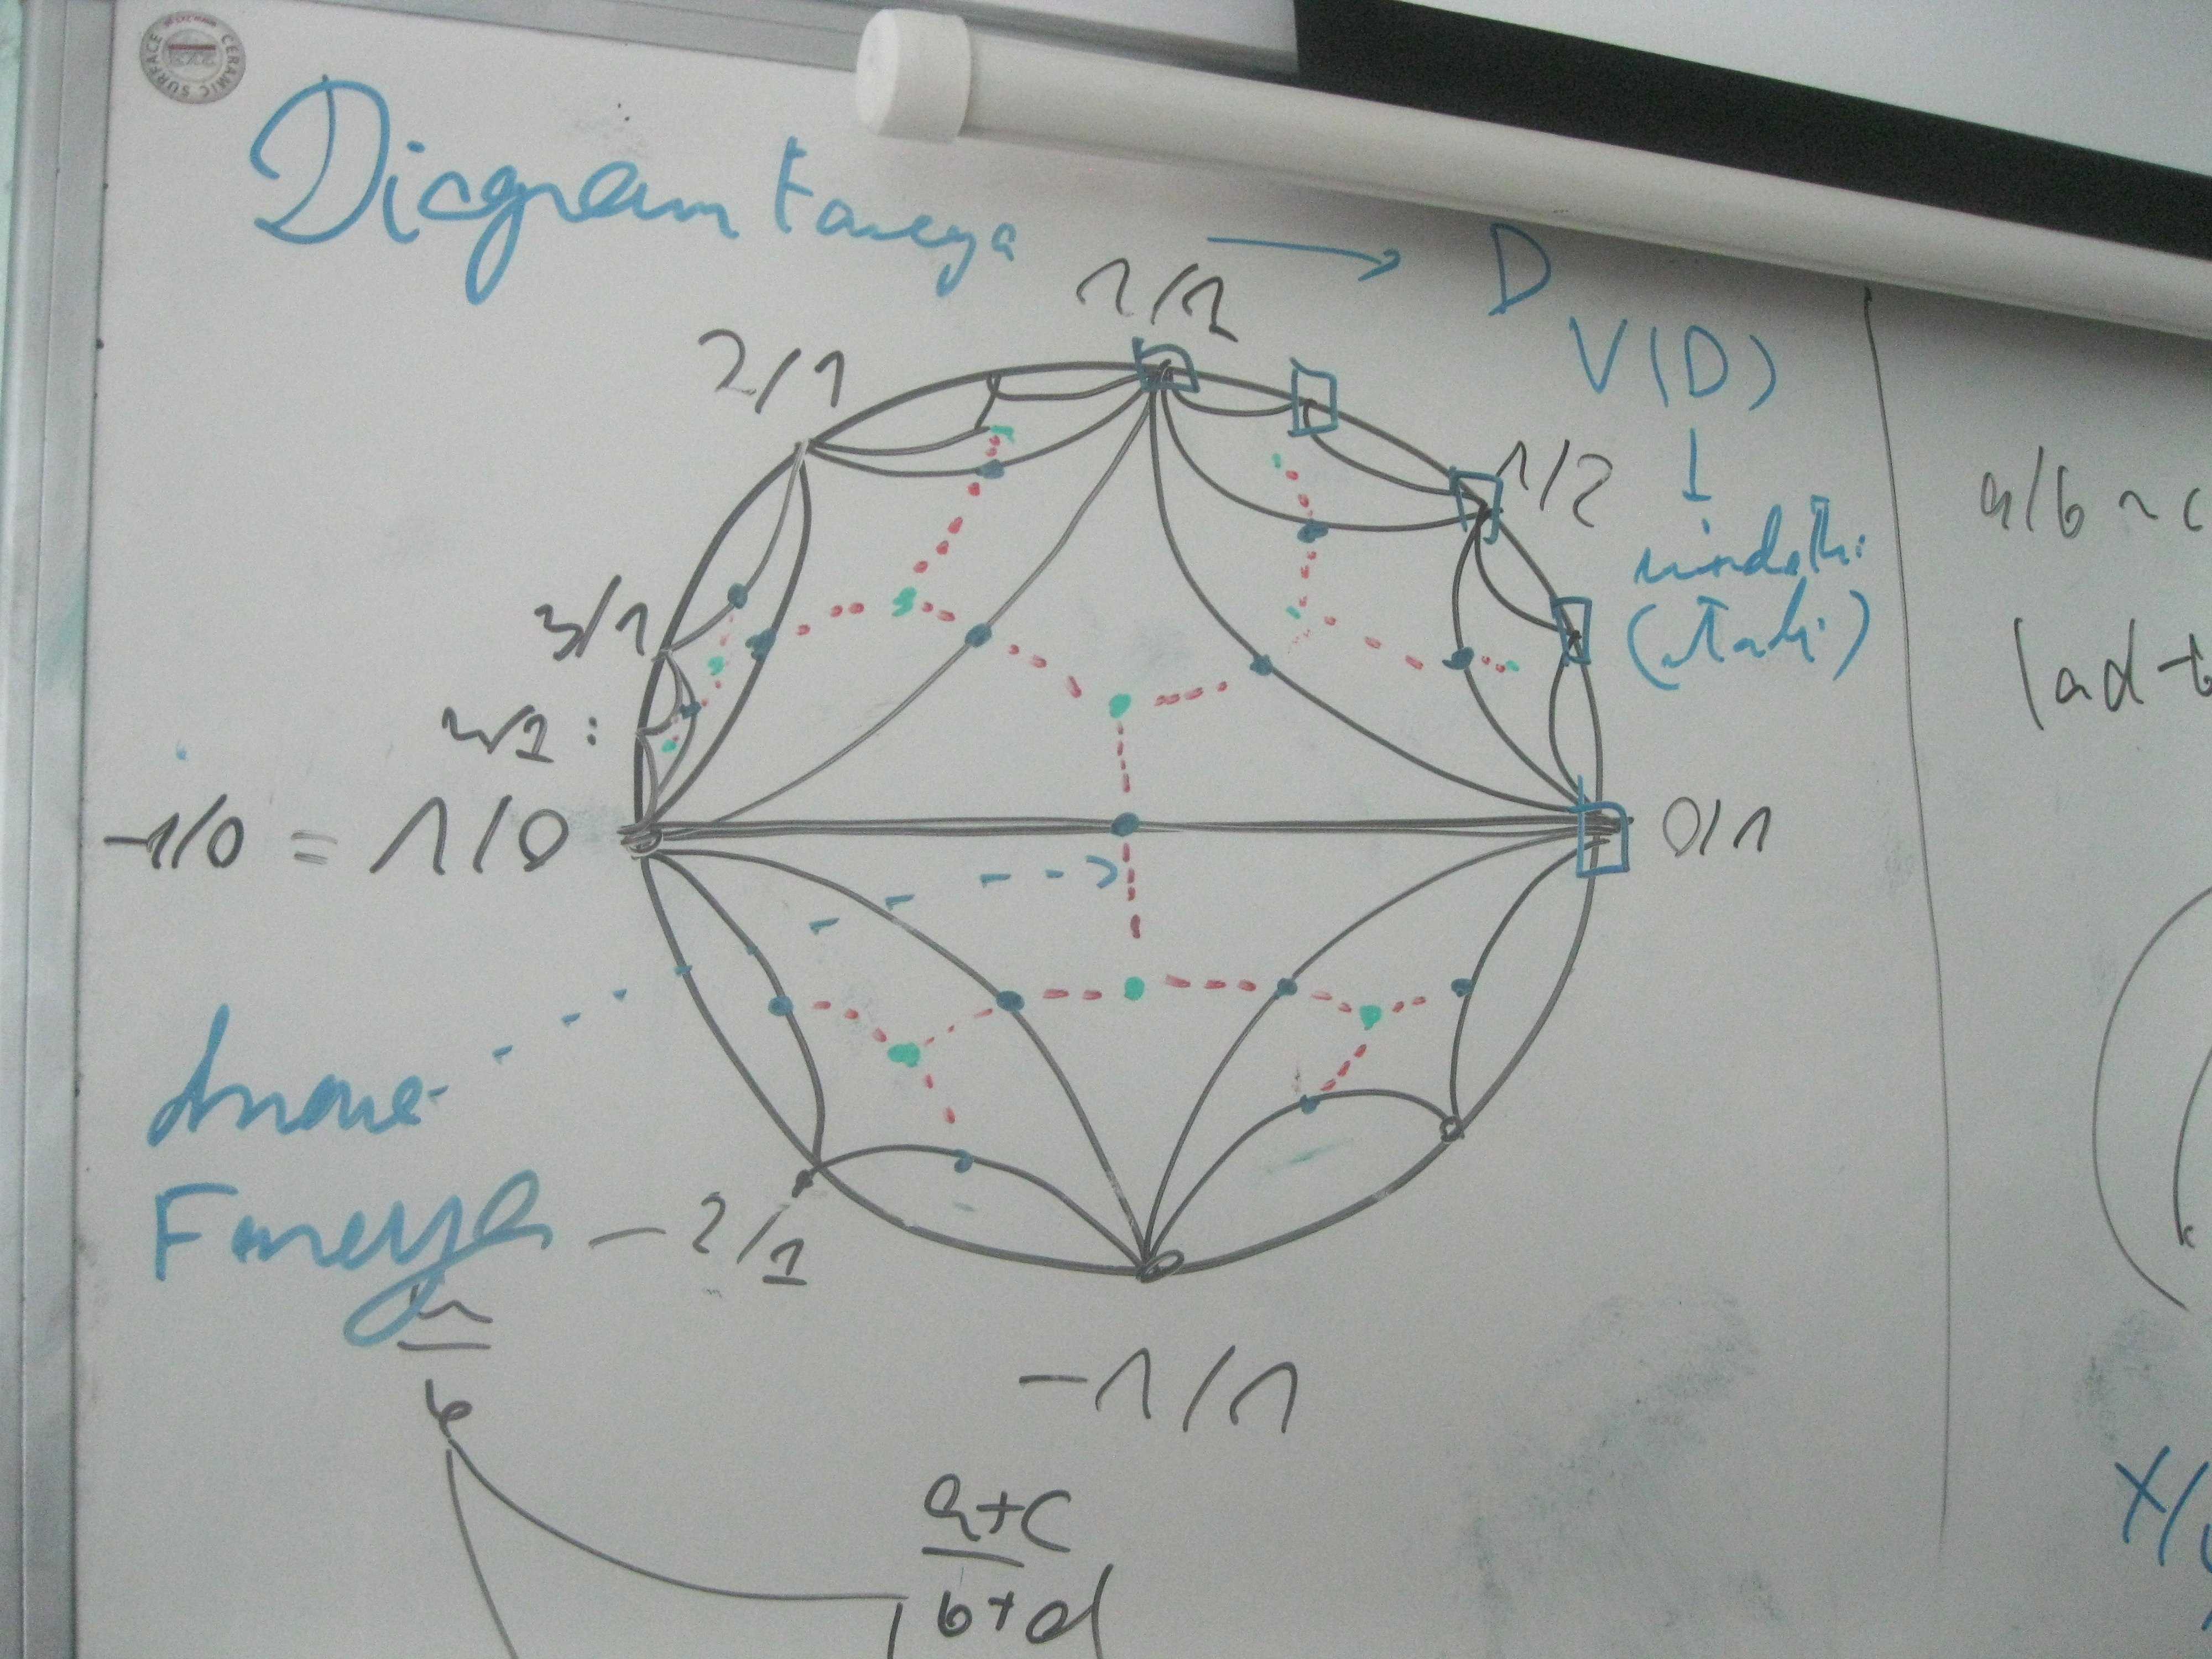 CERAMIC SURFACE
Diagram Fareya → D
V(D)
↓
(
)
1/1
2/1
1/2
3/1
4/1 :
-1/0 = 1/0
0/1
Fareya
-2/1
-1/1
a+c
b+d
a/b ~ c
|ad-b
X/